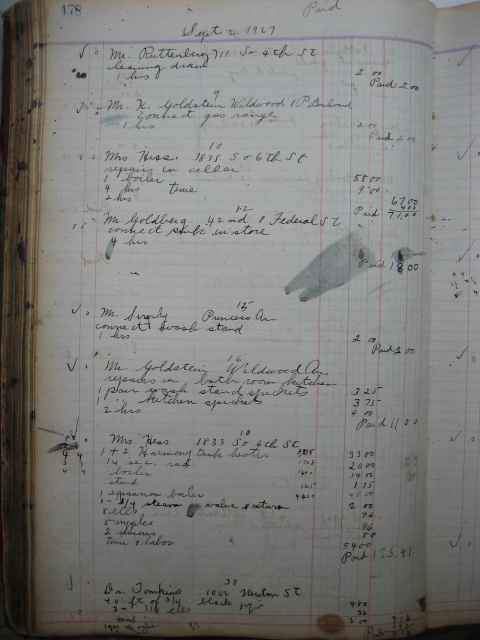 178
Paid
Sept 2, 1927
Mr. Ruttenberg 711 So 4th St
cleaning drain
1 hrs 2 00
Paid 2 00
9
Mr. K. Goldstein Wildwood
connect gas range
1 hrs 2 00
Paid 2 00
10
Mrs Hess. 1835 So 6th St
repairs in cellar
1 boiler 58 00
4 hrs time 9 00
2 hrs 67 00
4 00
Paid 71 00
12
Mr. Goldberg 42nd & Federal St
connect sink in store
4 hrs
Paid 8 00
15
Mr. Princess Av
connect wash stand
1 hrs 2 00
Paid 2 00
16
Mr. Goldstein Wildwood Av
repairs in bath room kitchen
1 pair wash stand spickets 3 25
1 " kitchen spickets 3 75
2 hrs 4 00
Paid 11 00
18
Mrs Hess 1833 So 6th St
1 + 2 Harmony tank heater 33 00
14 sec. rad 20 00
1 boiler 14 00
stand 1 25 1.75
1 boiler 44 00
1 - 3/4 steam valve & return 2 00
8 ells 76
8 nipples 96
2 unions 80
time & labor 54 00
Paid 175.41
30
Dr. Tomkins 1002 Newton St
40 ft of 3/4 black pipe 4 80
3 - 3/4 ells 36
2 00